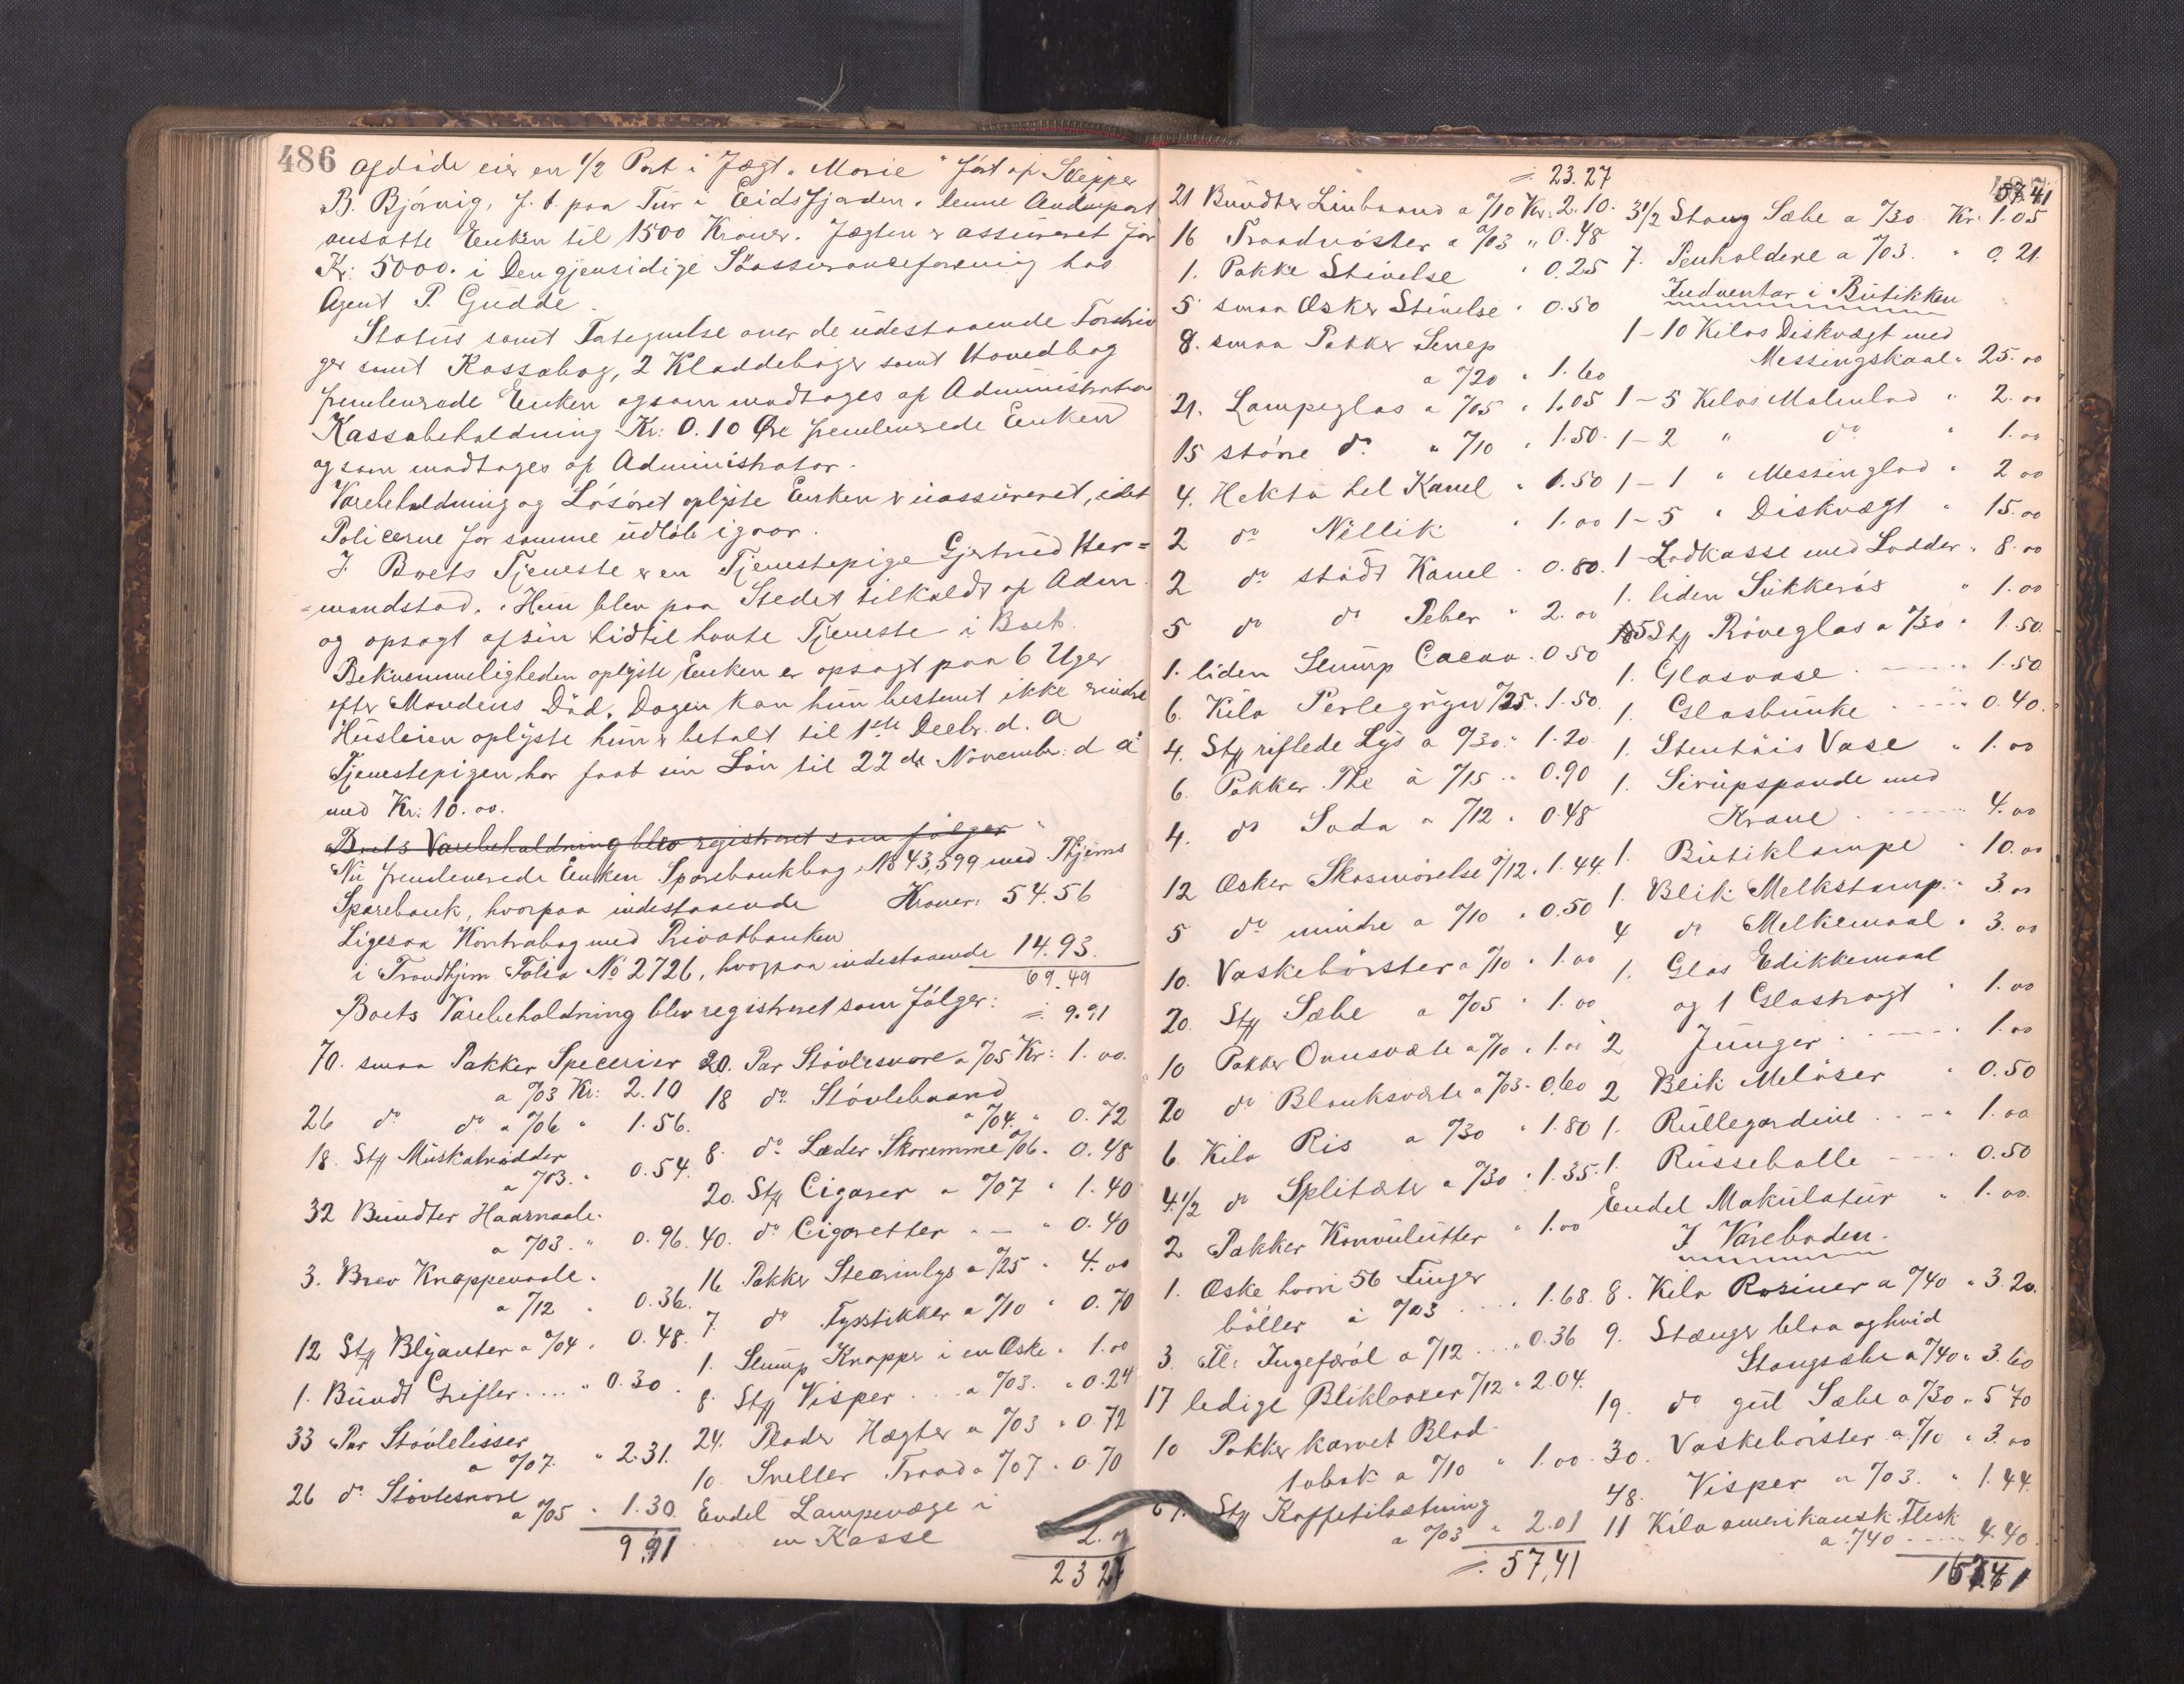 486
Afdøde eier en 1/2 Part i Jægt "Marie" ført af Skipper
B. Bjørnig, f. t. paa Tur i Eidsfjorden. Denne Andenpart
ansatte Enken til 1500 Kroner. Jægten er assureret for
Kr: 5000. i Den gjensidige Søassuranceforening hos
Agent P. Gudde.
Status samt Fortegnelse over de udestaaende Fordrin
ger samt Kassabog, 2 Kladdebøger samt Hovedbog
fremleverede Enken og som modtoges af Administrator
Kassabeholdning Kr: 0.10 Øre fremleverede Enken
og som modtoges af Administrator.
Varebeholdning og Løsøret oplyste Enken er uassureret, idet
Policerne for samme udløb igaar.
I Boets Tjeneste er en Tjenestepige Gjertrud Her=
=mandstad. Hun blev paa Stedet tilkaldt af Adm.
og opsagt af sin hidtil havte Tjeneste i Boet.
Bekvemmeligheden oplyste Enken er opsagt paa 6 Uger
efter Mandens Død. Dagen kan hun bestemt ikke erindre
Husleien oplyste hun er betalt til 1ste Decbr. d. A
Tjenestepigen har faat sin Løn til 22de Novembr. d. A
med Kr: 10.00.
Boets Varebeholdning blev registreret som følger
Nu fremleverede Enken Sparebankbog No 43,599 med Thjems
Sparebank, hvorpaa indestaaende Kroner: 54.56
Ligesaa Kontrabog med Privatbanken
i Trondhjem Folio No 2726, hvorpaa indestaaende 14.93.
69.49
Boets Varebeholdning blev registreret som følger:
70. smaa Pakker Specerier
a %03 Kr: 2.10
26 do do a %06 " 1.56.
18. Stk Muskatnødder
a %03. " 0.54.
32 Bundter Haarnaale.
a %03. " 0.96.
3. Brev Knappenaale.
a %12 " 0.36.
12 Stk Blyanter a %04 " 0.48.
1. Bundt Grifler .... " 0.30.
33 Par Støvlelisser
a %07. " 2.31.
26 do Støvlesnore
a %05 " 1.30.
9,91
÷ 9.91
20. Par Støvlesnore a %05 Kr: 1.00.
18 do Støvlebaand
a %04. " 0.72
8. do Læder Skoremme %06. 0.48
20. Stk Cigarer a %07 " 1.40
40. do Cigaretter " — " 0.40
16 Pakker Stearinlys a %25 " 4.00
7. do Fyrstikker a %10 " 0.70
1. Slump Knapper i en Æske " 1.00
8. Stk Visper ... a %03. " 0.24
24. Plader Hægter a %03 " 0.72
10. Sneller Traad a %07 " 0.70
Endel Lampevæge i
en Kasse 2.
23 27
÷ 23.27
21 Bundter Linbaand a %10 Kr: 2.10.
16 Traadnøster a %03 " 0.48
1. Pakke Stivelse " 0.25
5 smaa Æsker Stivelse " 0.50
8. smaa Pakker Senep
a %20 " 1.60
21. Lampeglas a %05 " 1.05
15 større do " %10 " 1.50.
4. Hekto hel Kanel " 0.50
2 do Nellik " 1.00
2 do stødt Kanel " 0.80.
5 do do Peber " 2.00
1. liden Slump Cacao . 0 50
6. Kilo Perlegryn %25 " 1.50.
4. Stk riflede Lys a %30 " 1.20
6. Pakker The à %15 " 0.90
4. do Soda a %12 " 0.48
12 Æsker Skosmørelse %12 " 1.44.
5 do mindre a %10 " 0.50
10. Vaskebørster a %10 " 1.00
20. Stk Sæbe a %05 " 1.00
10 Pakker Ovnsværte a %10 " 1.00
20 do Blanksværte a %03 " 0.60
6. Kilo Ris a %30 " 1.80
4 1/2 do Spliterter a %30 " 1.35.
2 Pakker Konvulutter " 1.00
1. Æske hvori 56 Finger
bøller à %03 .... " 1.68.
3. Fl: Ingeferøl a %12 ... " 0.36
17 ledige Blikbokser %12 " 2.04.
10 Pakker karvet Blad-
tobak a %10 " 1.00
67. Stk Kaffetilsætning
a %03 " 2.01
÷ 57,41
57.41
3 1/2 Stang Sæbe a %30 Kr: 1.05
7. Penholdere a %03. " 0.21.
Indventar i Butikken
1 – 10 Kilos Diskvægt med
Messingskaal " 25.00
1 – 5 Kilos Malmlod " 2.00
1 – 2 " do " 1.00
1 – 1 " Messinglod " 2 00
1 – 5 " Diskvægt " 15.00
1 Lodkasse med Lodder " 8.00
1. liden Sukkerøs " 1.00
5 Stk Prøveglas a %30 " 1.50.
1. Glasvase . — . " 1.50
1. Glasbunke .... 0.40.
1. Stentøis Vase " 1.00
1. Sirupspande med
Krane ..... 4.00
1. Butiklampe " 10.00
1. Blik Melkstamp " 3.00
4 do Melkemaal " 3.00
1. Glas Edikkemaal
og 1 Glastragt " 1.00
2 Junger .... 1.00
2 Blik Meløser " 0.50
1. Rullegardine ... " 1.00
1. Russeballe .... 0.50
Endel Makulatur " 1.00.
I Vareboden.
8. Kilo Rosiner a %40 " 3.20.
9. Stænger blaa og hvid
Stangsæbe a %40 " 3.60
19. do gul Sæbe a %30 " 5 70
30. Vaskebørster a %10 " 3.00
48. Visper a %03. " 1.44.
11 Kilo amerikansk Flesk
a %40 ..... 4.40